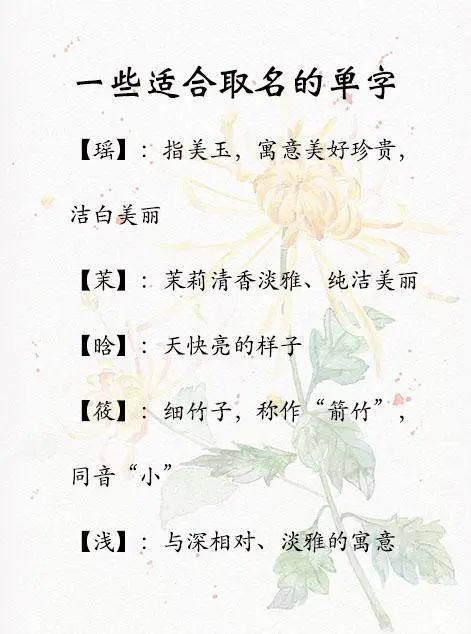 一些适合取名的单字
【瑶】：指美玉，寓意美好珍贵，
洁白美丽
【茉】：茉莉清香淡雅、纯洁美丽
【晗】：天快亮的样子
【筱】：细竹子，称作“箭竹”，
同音“小”
【浅】：与深相对、淡雅的寓意